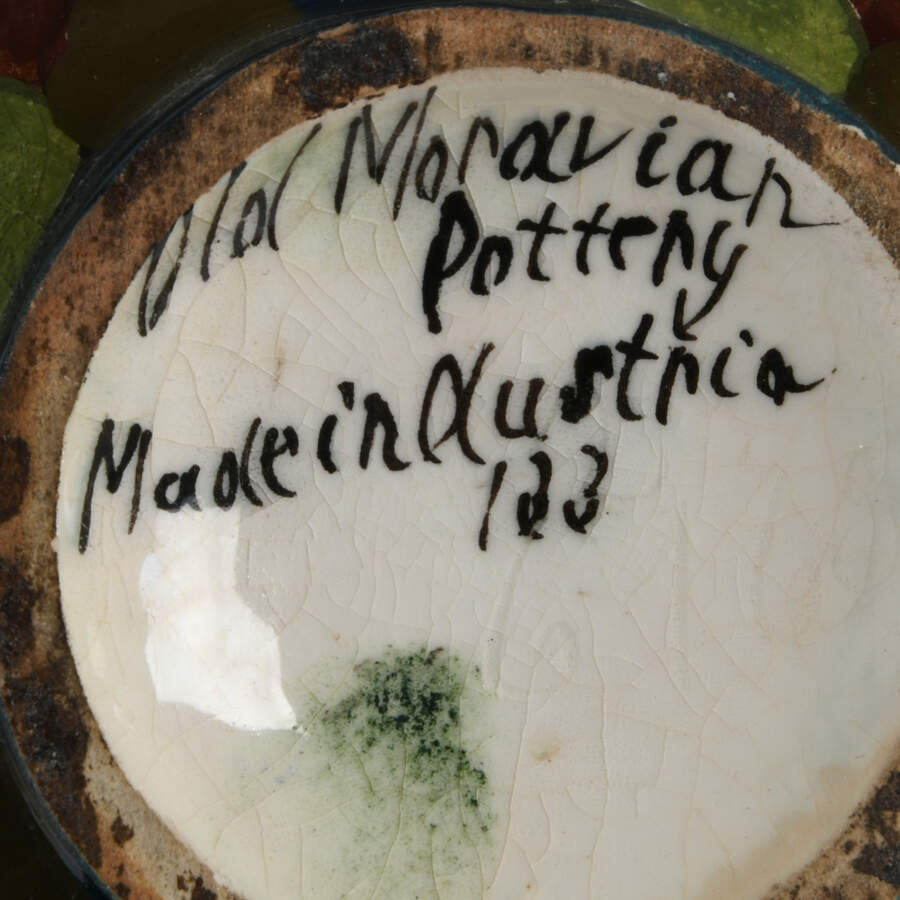 Old Moravian
Pottery
Made in Austria
133